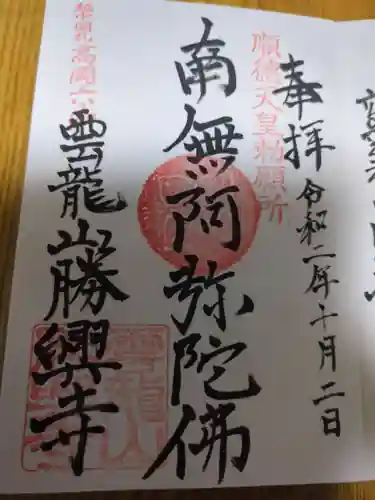 奉拝
令和二年十月二日
順徳天皇勅願所
南無阿弥陀佛
雲龍山勝興寺